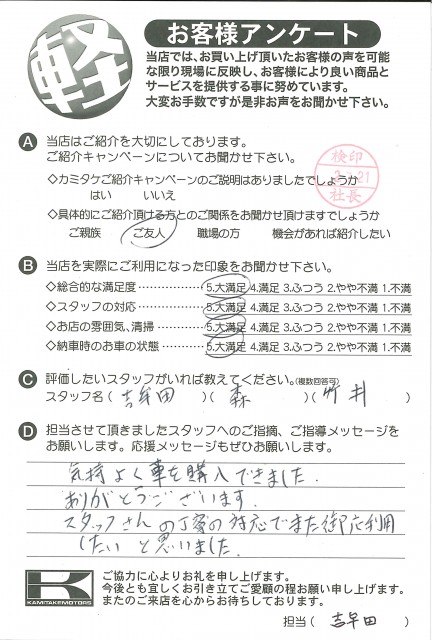 軽
お客様アンケート
当店では、お買い上げ頂いたお客様の声を可能
な限り現場に反映し、お客様により良い商品と
サービスを提供する事に努めています。
大変お手数ですが是非お声をお聞かせ下さい。
A 当店はご紹介を大切にしております。
ご紹介キャンペーンについてお聞かせ下さい。
◇カミタケご紹介キャンペーンのご説明はありましたでしょうか
はい いいえ
検印
社長
◇具体的にご紹介頂ける方とのご関係をお聞かせ頂けますでしょうか
ご親族 ご友人 職場の方 機会があれば紹介したい
B 当店を実際にご利用になった印象をお聞かせ下さい。
◇総合的な満足度……………… 5.大満足 4.満足 3.ふつう 2.やや不満 1.不満
◇スタッフの対応……………… 5.大満足 4.満足 3.ふつう 2.やや不満 1.不満
◇お店の雰囲気、清掃………… 5.大満足 4.満足 3.ふつう 2.やや不満 1.不満
◇納車時のお車の状態………… 5.大満足 4.満足 3.ふつう 2.やや不満 1.不満
C 評価したいスタッフがいれば教えてください。(複数回答可)
スタッフ名( 吉牟田 )( 森 )( 竹井 )
D 担当させて頂きましたスタッフへのご指摘、ご指導メッセージを
お願いします。応援メッセージもぜひお願いします。
気持よく車を購入できました.
ありがとうございます.
スタッフさんの丁寧の対応でまた御応利用
したいと思いました.
K
KAMITAKEMOTORS
ご協力に心よりお礼を申し上げます。
今後とも宜しくお引き立てご愛顧の程お願い申し上げます。
またのご来店を心からお待ちしております。
担当( 吉牟田 )